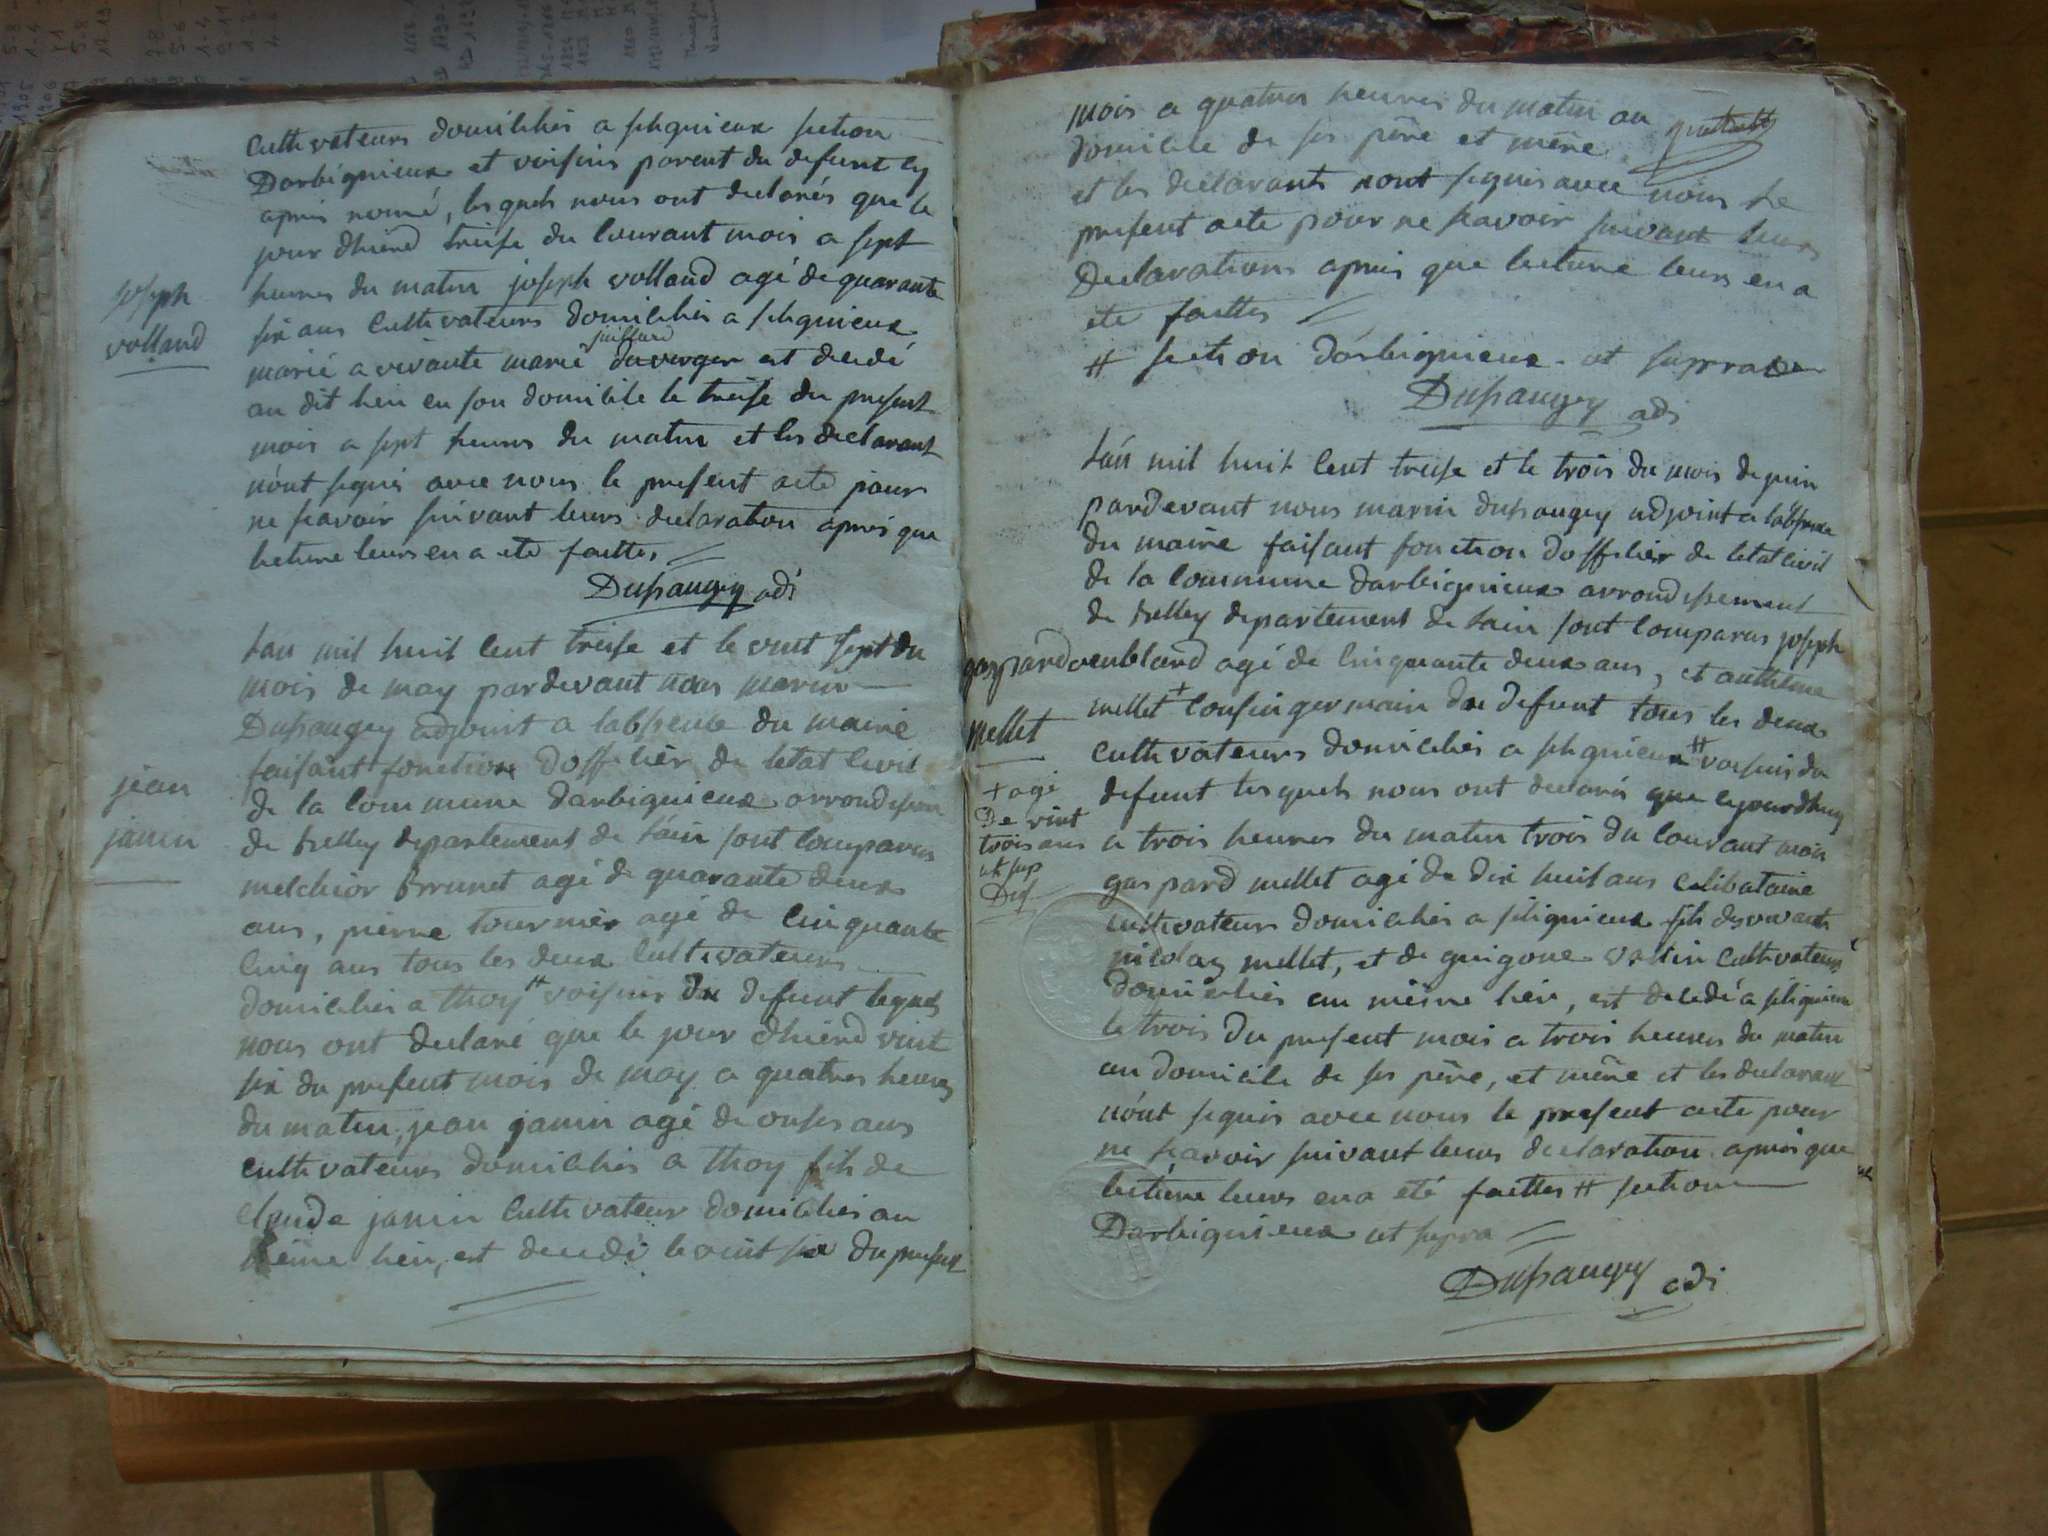 Cultivateurs domiciliés a st ligneux section
Darbignieux et voisins parent du defunt cy
apres nomé, les quels nous ont declarés que le
jour dhierd treise du Courant mois a sept
heures du matin joseph volland agé de quarante
six ans Cultivateurs domiciliés a
marié a vivante marie duverger est decedé
au dit lieu en son domicile le treise du present
mois a sept heures du matin et les declarant
nónt signés avec nous le present acte pour
ne scavoir suivant leurs declaration apres que
lecture leurs en a eté faittes
adi
joseph
volland
Lán mil huit Cent treise et le vint sept du
mois de may pardevant nous marin
adjoint a labsence du maire
faisant fonction dofficier de létat Civil
de la Commune darbignieux arrondissem
de belley departement de láin sont Comparus
melchior brunet agé de quarante deux
ans, pierre tournier agé de Cinquante
Cinq ans tous les deux Cultivateurs
domiciliés a thoy # voisins du defunt lequels
nous ont declaré que le jour dhierd vint
six du present mois de may a quatres heures
du matin, jean janin agé de onses ans
cultivateurs domiciliés a thoy fils de
claude janin Cultivateur domiciliés au
même lieu, est decedé le vint six du present
jean
janin
mois a quatres heures du matin au
domicile de ses père et mère
et les declarants nont signés avec nous le
present acte pour ne scavoir suivant leurs
Declarations apres que lecture leurs en a
eté faittes
# section dárbignieux ut supra
adi
Lán mil huit Cent treise et le trois du mois de juin
pardevant nous marin adjoint a labsence
du maire faisant fonction dofficier de létat Civil
de la Commune darbignieux arrondissement
de belley departement de láin sont Comparus joseph
agé de Cinquante deux ans, et anthême
mellet + Cousin germain du defunt tous les deux
Cultivateurs domiciliés a # voisins du
defunt les quels nous ont declarés que cejourdhuy
a trois heures du matin trois du Courant mois
gaspard mellet agé de dix huit ans Celibataire
cultivateurs domiciliés a fils des vivants
nicolas mellet, et de guigone Cultivateurs
domiciliés au même lieu, est decedé a
le trois du present mois a trois heures du matin
au domicile de ses père, et mère et les declarant
nónt signés avec nous le present acte pour
ne scavoir suivant leurs declaration apres que
lecture leurs en a eté faittes # section
Darbignieux ut supra
adi
gaspard
mellet
+ agé
De vint
trois ans
ut sup